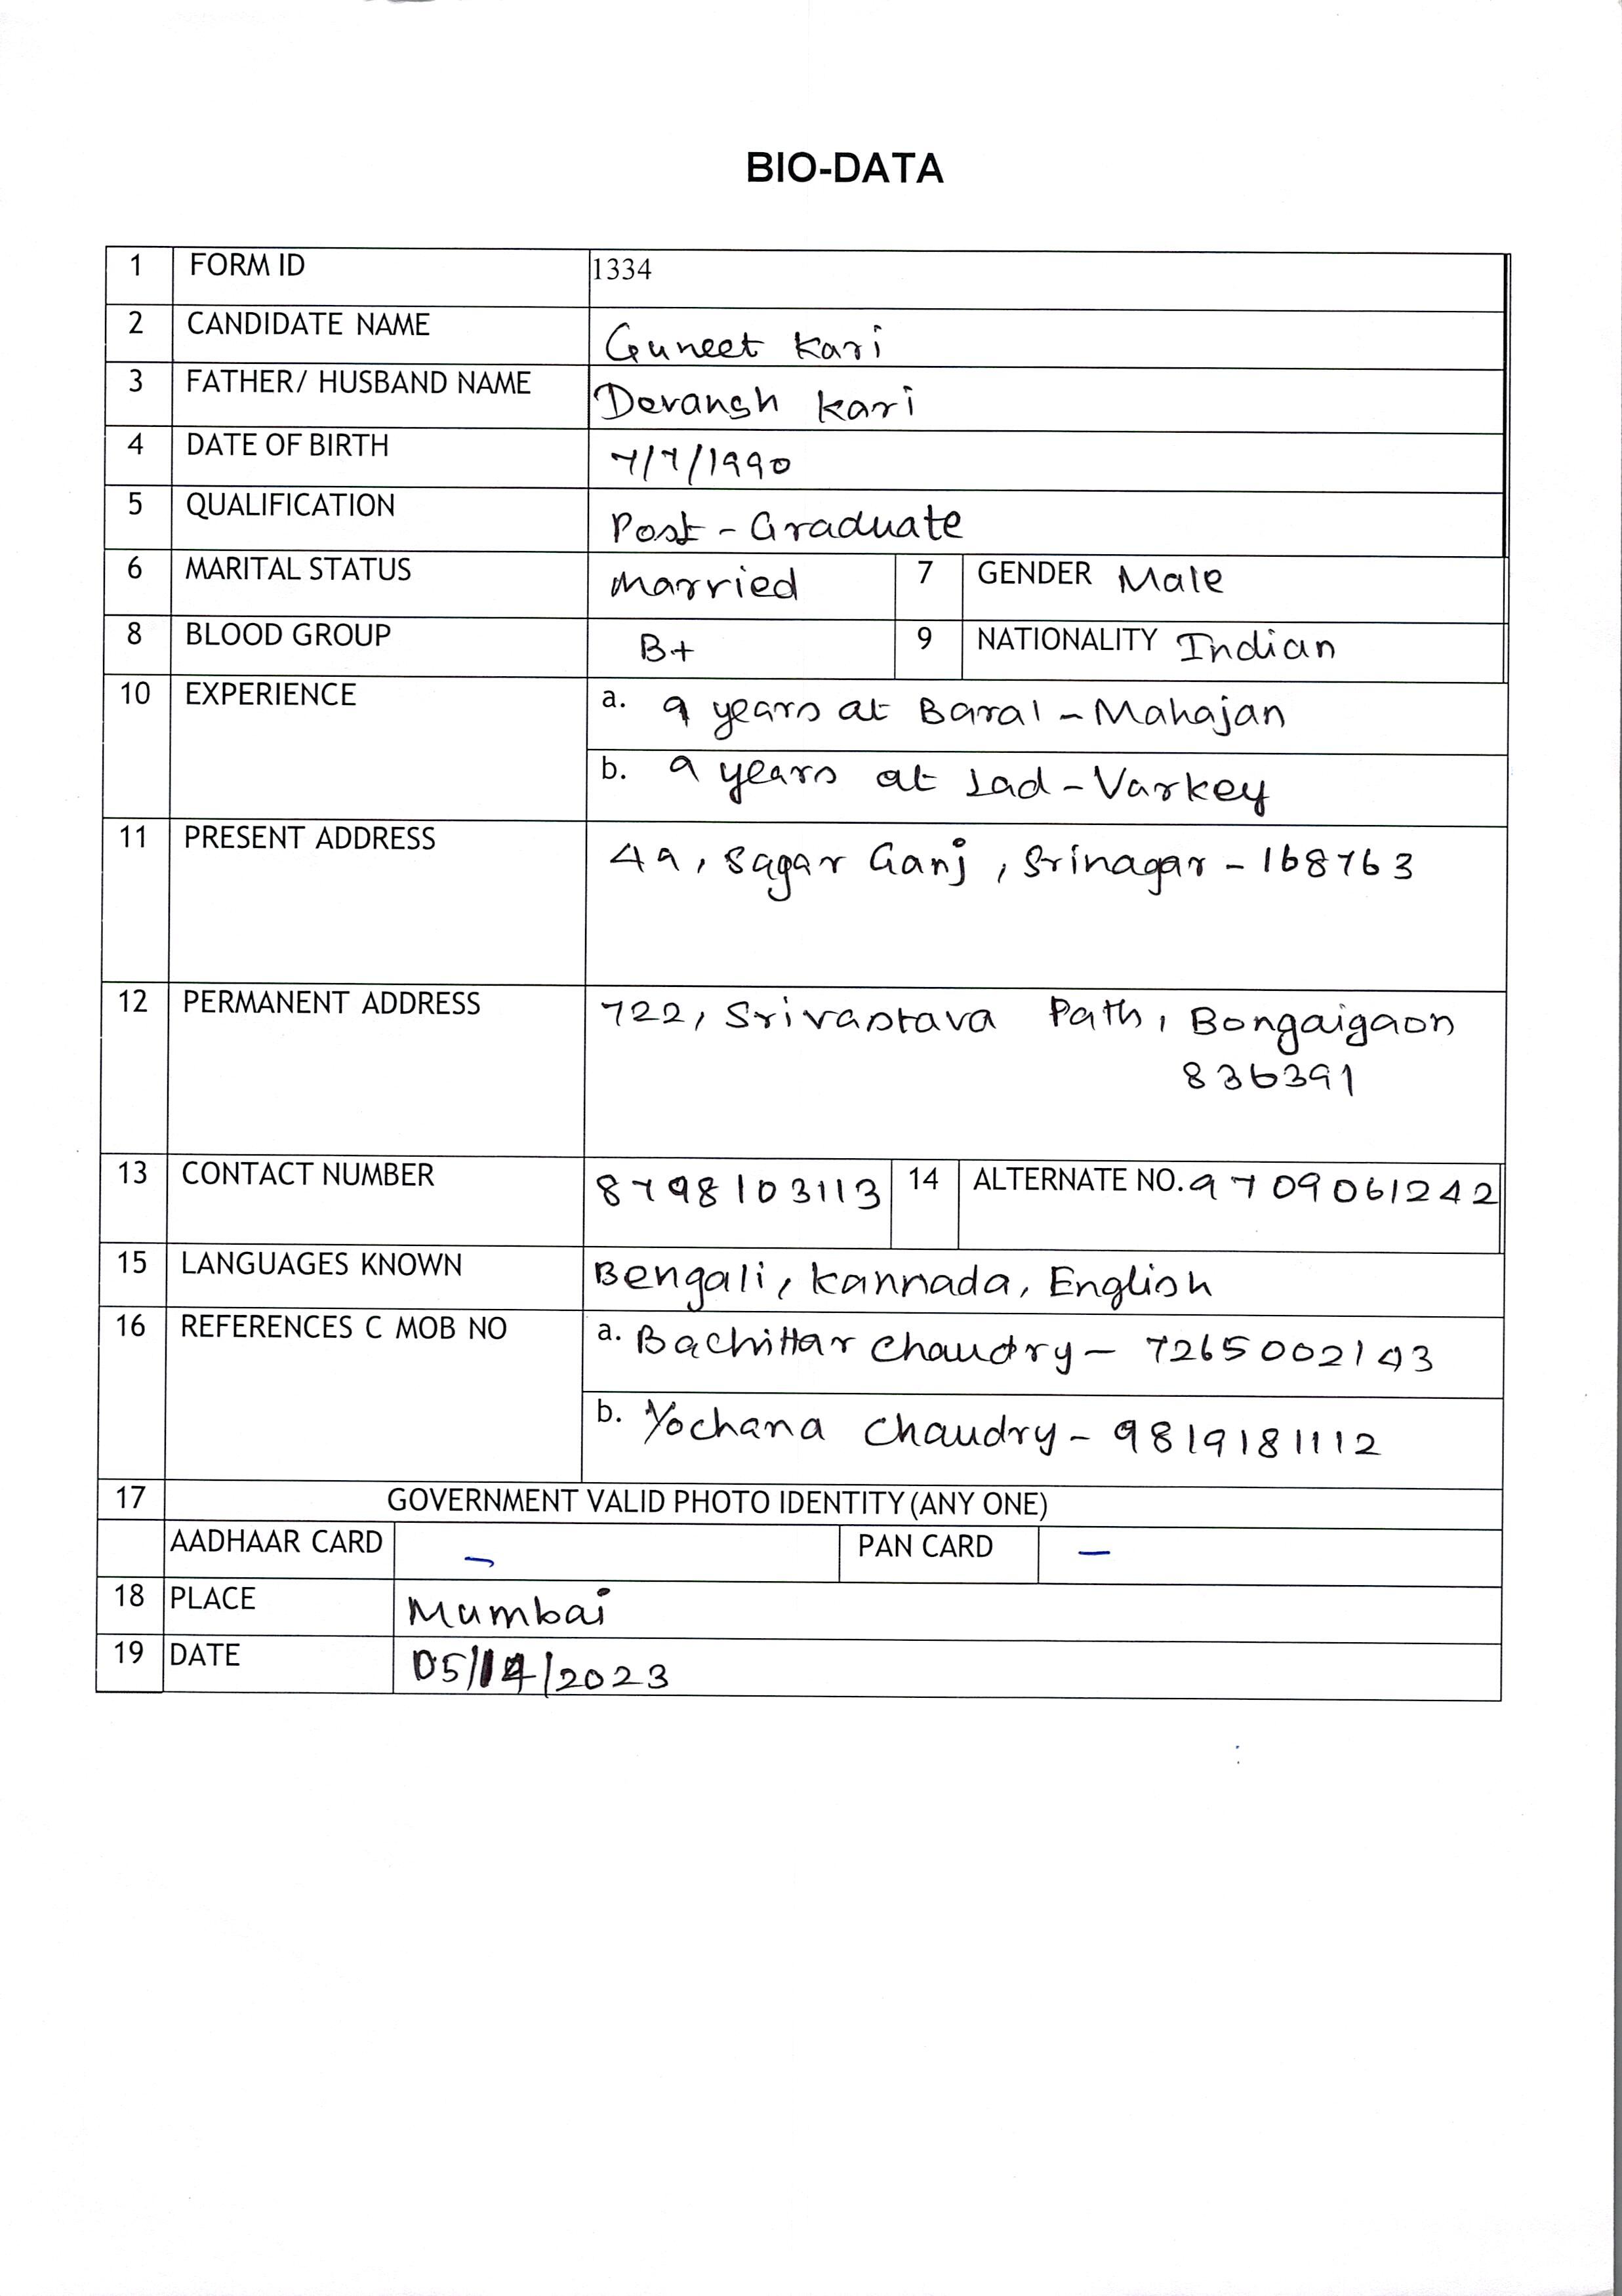 BIO-DATA
1 FORM ID 1334
2 CANDIDATE NAME Guneet Kari
3 FATHER/ HUSBAND NAME Devansh Kari
4 DATE OF BIRTH 7/7/1990
5 QUALIFICATION Post-Graduate
6 MARITAL STATUS Married 7 GENDER Male
8 BLOOD GROUP B+ 9 NATIONALITY Indian
10 EXPERIENCE a. 9 years at Baral-Mahajan
b. 9 years at Lad-Varkey
11 PRESENT ADDRESS 49, Sagar Ganj, Srinagar-168763
12 PERMANENT ADDRESS 722, Srivastava Path, Bongaigaon
836391
13 CONTACT NUMBER 8798103113 14 ALTERNATE NO. 9709061242
15 LANGUAGES KNOWN Bengali, Kannada, English
16 REFERENCES C MOB NO a. Bachittar Chaudry - 7265002143
b. Yochana Chaudry - 9819181112
17 GOVERNMENT VALID PHOTO IDENTITY (ANY ONE)
AADHAAR CARD - PAN CARD -
18 PLACE Mumbai
19 DATE